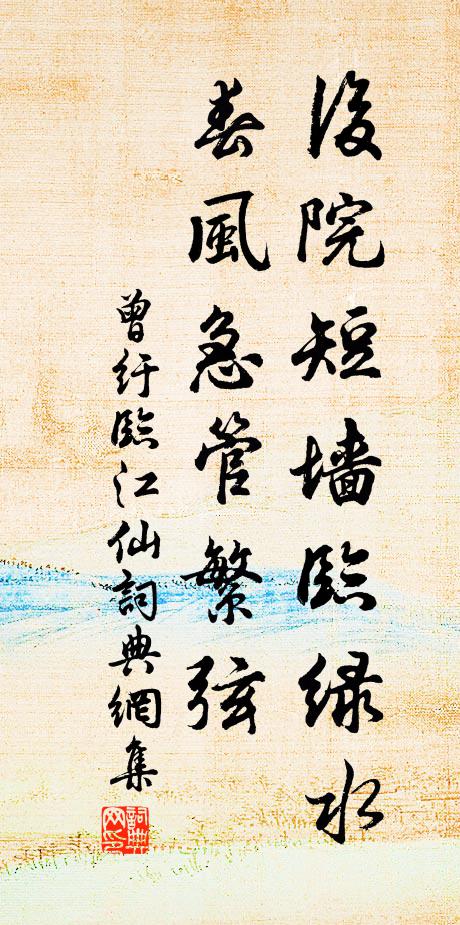 後院短墙臨緑水
春風急管繁弦
曾紆臨江仙詞典網集
詞典网印